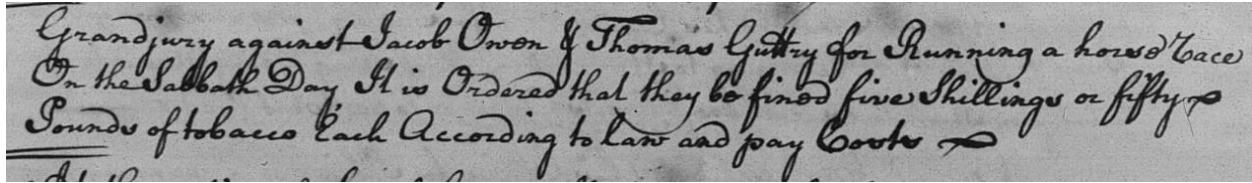 Grandjury against Jacob Owen & Thomas Guttry for Running a horse Race
On the Sabbath Day It is Ordered that they be fined five Shillings or fifty
Pounds of tobacco Each According to law and pay Costs